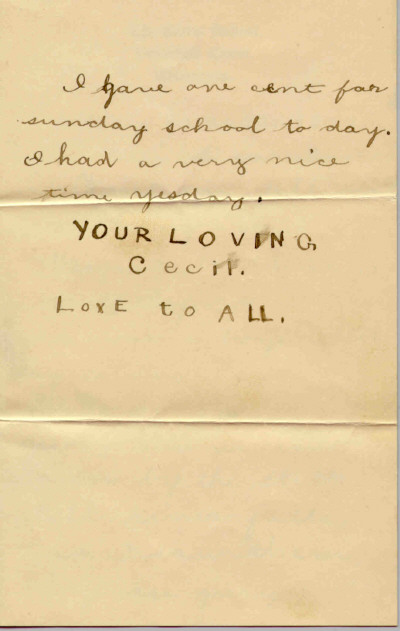 I gave one cent for
sunday school to day.
I had a very nice
time yesday.
YOUR LOVING
Cecil.
LOXE to ALL.